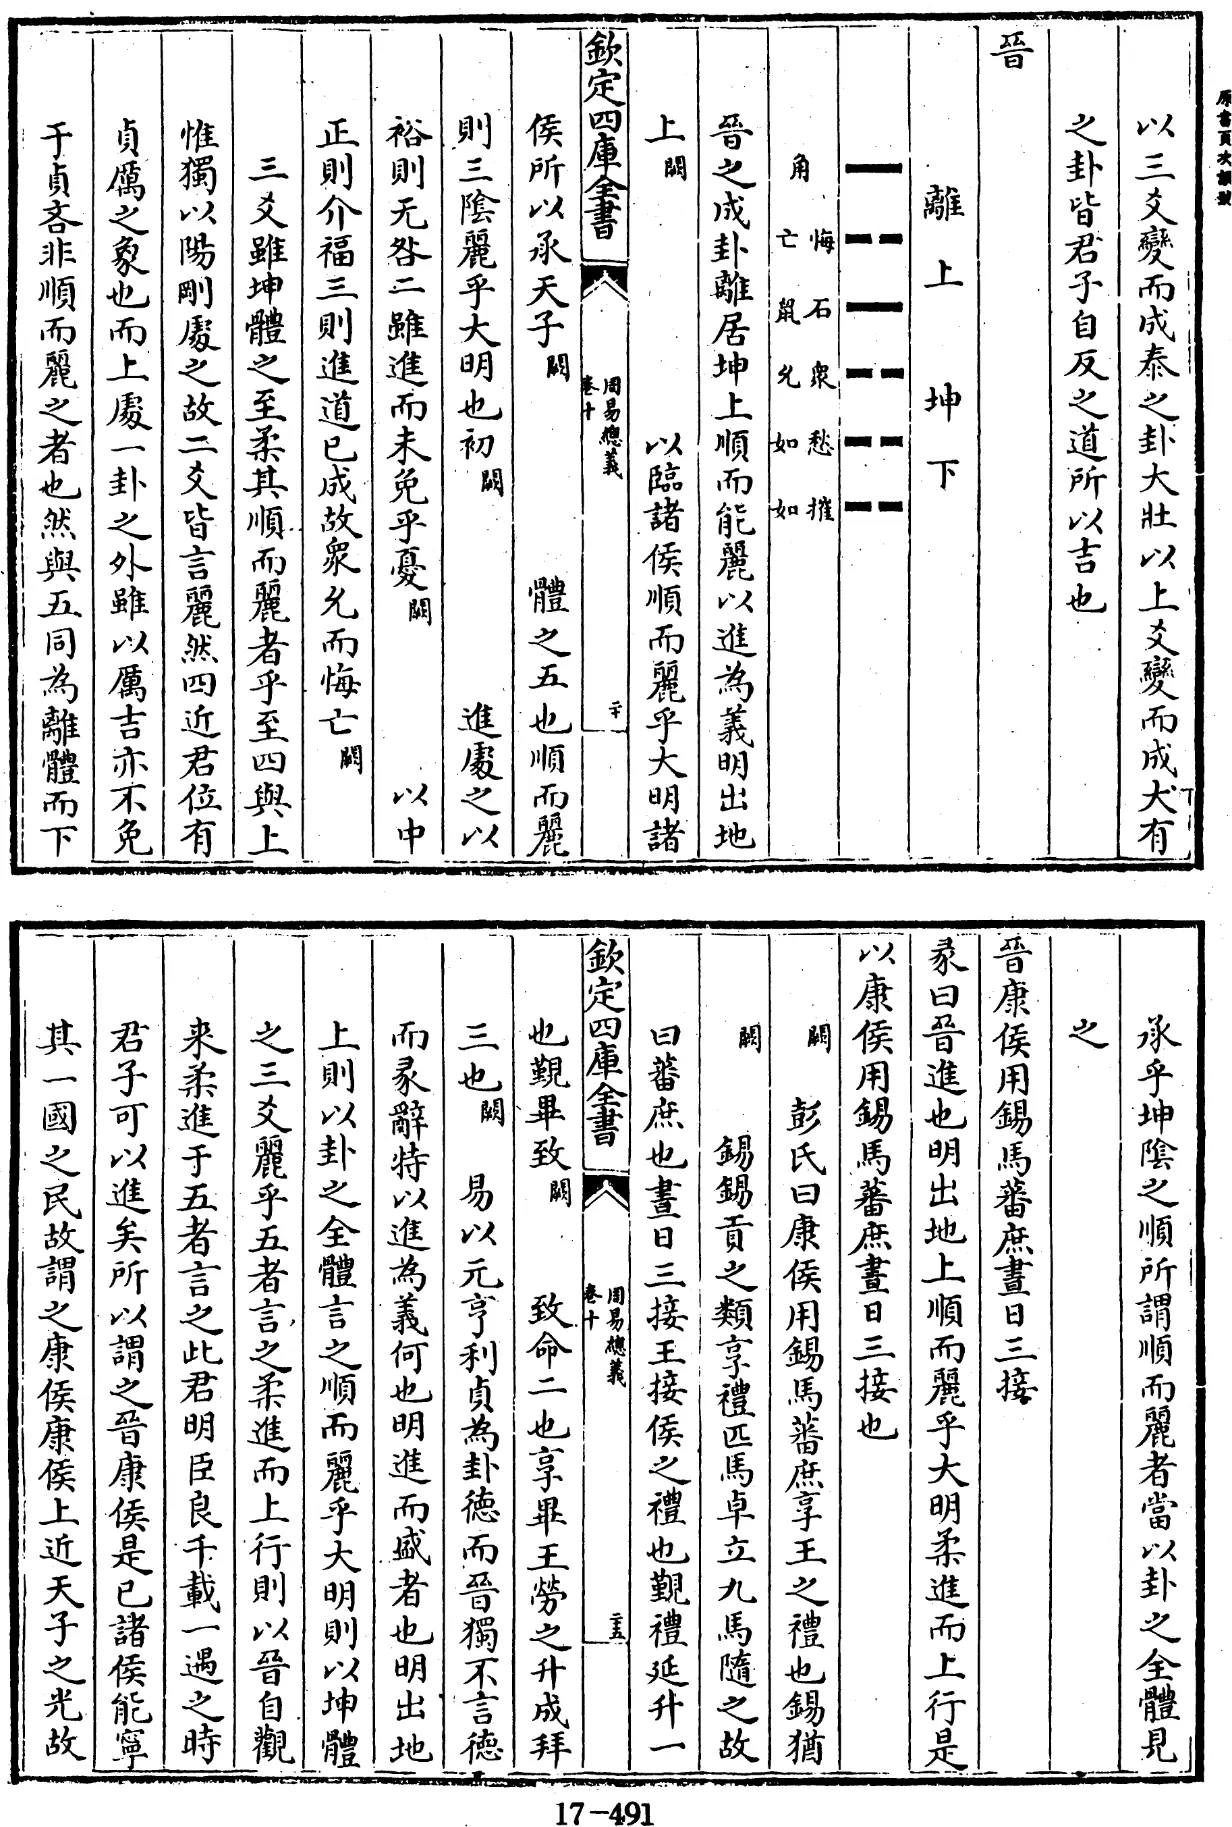 原書頁次誤號
以三爻變而成泰之卦大壯以上爻變而成大有
之卦皆君子自反之道所以吉也
晉
離上　坤下
角
悔亡
石鼠
衆允
愁如
摧如
晉之成卦離居坤上順而能麗以進為義明出地
上闕　以臨諸侯順而麗乎大明諸
侯所以承天子闕　體之五也順而麗
欽定四庫全書
周易總義
卷十
二十
則三陰麗乎大明也初闕　進處之以
裕則无咎二雖進而未免乎憂闕　以中
正則介福三則進道已成故衆允而悔亡闕
三爻雖坤體之至柔其順而麗者乎至四與上
惟獨以陽剛處之故二爻皆言麗然四近君位有
貞厲之象也而上處一卦之外雖以厲吉亦不免
于貞吝非順而麗之者也然與五同為離體而下
承乎坤陰之順所謂順而麗者當以卦之全體見
之
晉康侯用錫馬蕃庶晝日三接
彖曰晉進也明出地上順而麗乎大明柔進而上行是
以康侯用錫馬蕃庶晝日三接也
闕　彭氏曰康侯用錫馬蕃庶享王之禮也錫猶
闕　錫錫貢之類享禮匹馬卓立九馬隨之故
曰蕃庶也晝日三接王接侯之禮也覲禮延升一
也覲畢致闕　致命二也享畢王勞之升成拜
欽定四庫全書
周易總義
卷十
二五
三也闕　易以元亨利貞為卦德而晉獨不言德
而彖辭特以進為義何也明進而盛者也明出地
上則以卦之全體言之順而麗乎大明則以坤體
之三爻麗乎五者言之柔進而上行則以晉自觀
來柔進于五者言之此君明臣良千載一遇之時
君子可以進矣所以謂之晉康侯是已諸侯能寧
其一國之民故謂之康侯康侯上近天子之光故
17-491